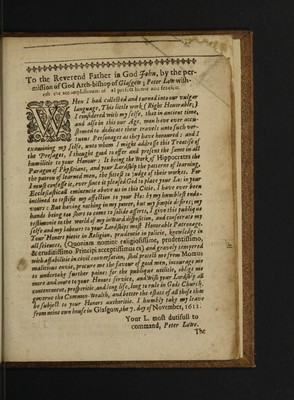 To the Reverend Father in God John, by the per-
mission of God Arch-bishop of Glasgow; Peter Low with-
eth the accomplishment of al perfect honor and felicitie.
WHen I had collected and turned into our vulgar
language, This little work (Right Honorable;)
I considered with my selfe, that in ancient time,
and also in this our Age, men have ever accu-
stomed to dedicate their travels unto such ver-
tuous Personages as they have honoured: and I
examining my selfe, unto whom I might addresse this Treatise of
the Presages, I thought good to offer and present the same in all
humilitie to your Honor: It being the Work of Hippocrates the
Paragon of Physitions, and your Lordship the patterne of learning,
the patron of learned men, the fittest to judge of their workes. For
I must confesse it, ever since it pleased God to place your Lo: in your
Ecclesiasticall eminencie above us in this Citie, I have ever been
inclined to testifie my affection to your Ho: by my humblest ende-
vours: But having nothing in my power, but my simple desires; my
hands being too short to come to solide effects, I give this publique
testimonie to the world of my inward disposition, and consecrate my
selfe and my labours to your Lordships most Honorable Patronage.
Your Honors pietie in Religion, prudencie in policie, knowledge in
all sciences, (Quoniam nomine religiosissime, prudentissimo,
& eruditissimo Principi acceptissimus es) and gravely tempered
with affabilitie in civill conversation, shal protect me from Momus
malicious envie, procure me the favour of good men, incourage me
to undertake further paines for the publique utilitie, oblige me
more and more to your Honors service, and wish your Lordship all
contentment, prosperitie, and long life, long to rule in Gods Church,
governe the Common-Wealth, and better the estate of all those that
be subject to your Honors authoritie. I humbly take my leave
from mine own house in Glasgow, the 7. day of November, 1611.
Your L. most dutifull to
command, Peter Lowe.
The